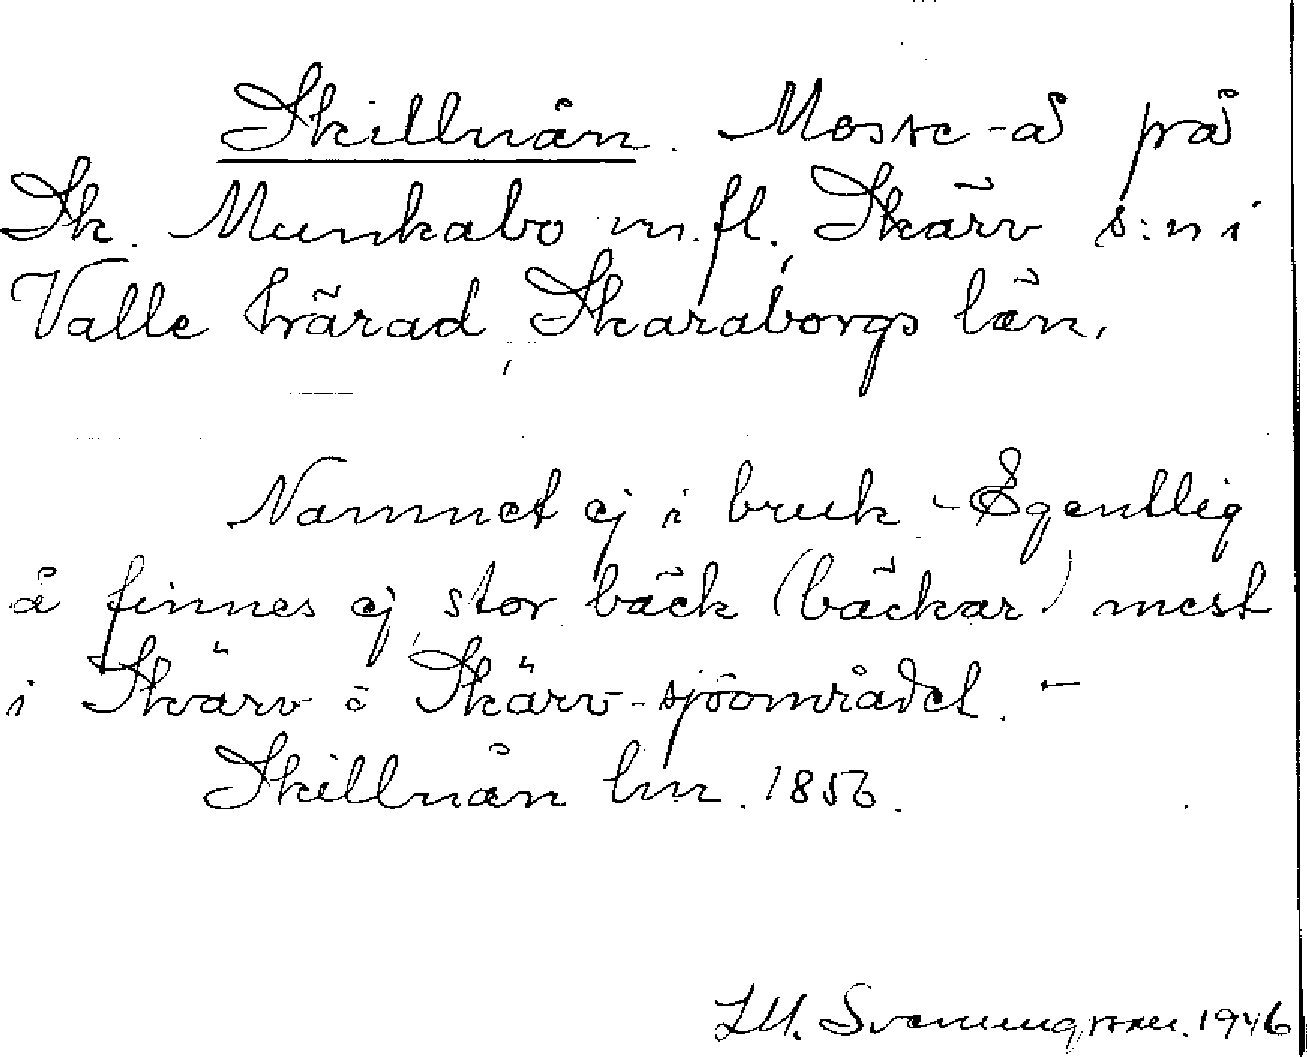 Skillnån. Mosse-å på
Sk. Munkabo m.fl., Skärv s:n i
Valle härad, Skaraborgs län.
Namnet ej i bruk - Egentlig
å finnes ej, stor bäck (bäckar) mest
i Skärv o Skärv-sjöområdet. -
Skillnån lm. 1856.
1946